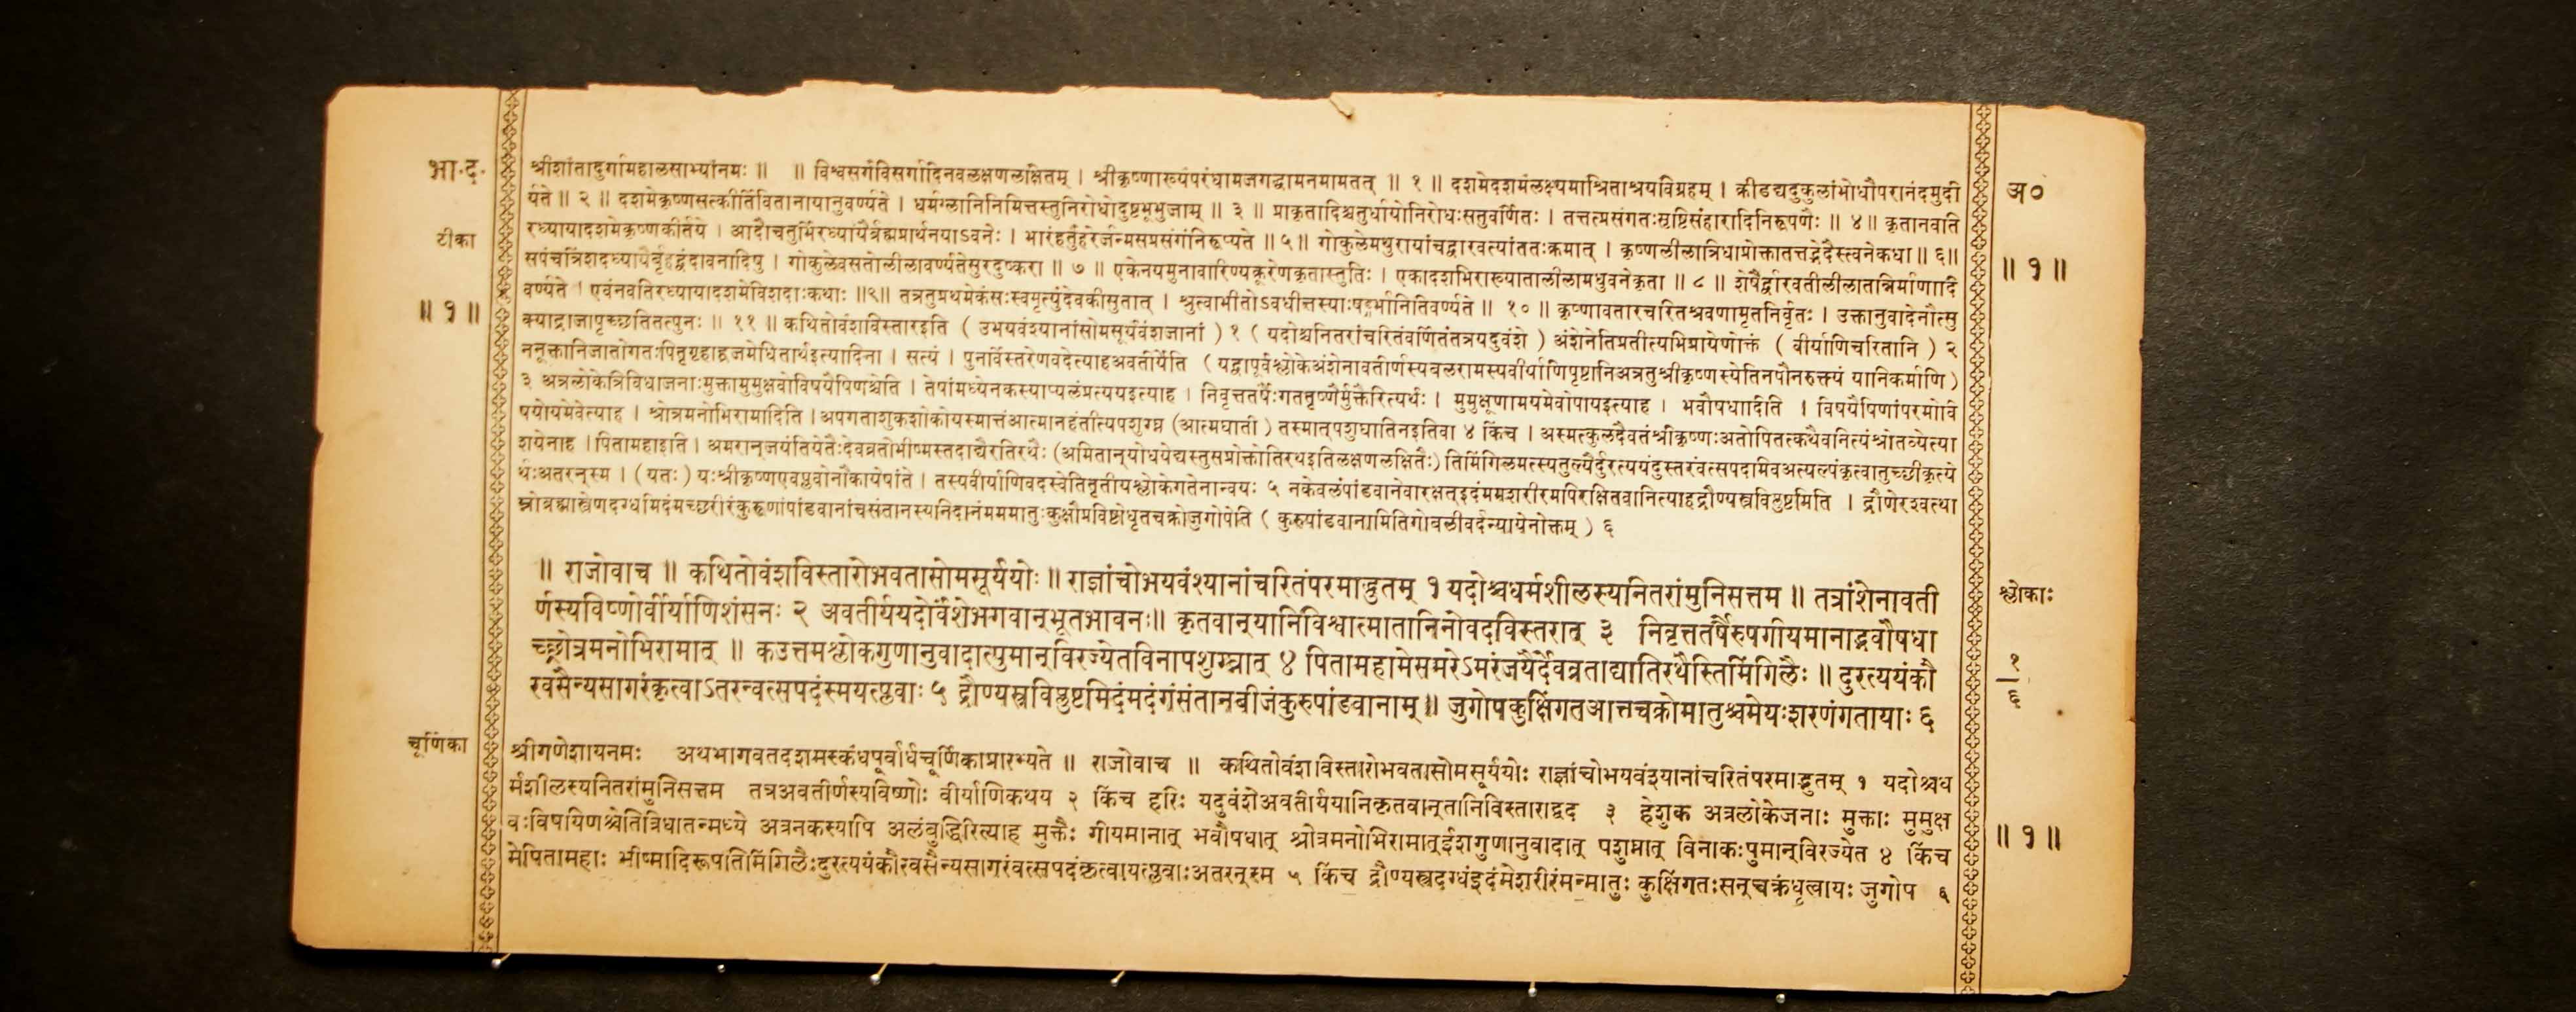 भा.द.
टीका
॥ १ ॥
श्रीशांतादुर्गामहालसाभ्यांनमः ॥ ॥ विश्वसर्गविसर्गादिनवलक्षणलक्षितम् । श्रीकृष्णाख्यंपरंधामजगद्धामनमामतत् ॥ १ ॥ दशमेदशमंलक्ष्यमाश्रिताश्रयविग्रहम् । क्रीडद्यदुकुलांभोधौपरानंदमुदी
र्यते ॥ २ ॥ दशमेकृष्णसत्कीर्तिवितानायानुवर्ण्यते । धर्मग्लानिनिमित्तस्तुनिरोधोदुष्टभूभुजाम् ॥ ३ ॥ प्राकृतादिश्चतुर्धायोनिरोधःसतुवर्णितः । तत्तत्प्रसंगतःसृष्टिसंहारादिनिरूपणैः ॥ ४ ॥ कृतानवति
रध्यायादशमेकृष्णकीर्तये । आदौचतुर्भिरध्यायैर्ब्रह्मप्रार्थनयाऽवनेः । भारंहर्तुंहरेर्जन्मसप्रसंगंनिरूप्यते ॥ ५ ॥ गोकुलेमथुरायांचद्वारवत्यांततःक्रमात् । कृष्णलीलात्रिधाप्रोक्तातत्तद्भेदैस्त्वनेकधा ॥ ६ ॥
सपंचत्रिंशदध्यायैर्बृहद्वृंदावनादिषु । गोकुलेवसतोलीलावर्ण्यतेसुरदुष्करा ॥ ७ ॥ एकेनयमुनावारिण्यक्रूरेणकृतास्तुतिः । एकादशभिराख्यातालीलामधुवनेकृता ॥ ८ ॥ शेषैर्द्वारवतीलीलातन्निर्माणादि
वर्ण्यते । एवंनवतिरध्यायादशमेविशदाःकथाः ॥९॥ तत्रतुप्रथमेकंसःस्वमृत्युंदेवकीसुतात् । श्रुत्वाभीतोऽवधीत्तस्याःषड्गर्भानितिवर्ण्यते ॥ १० ॥ कृष्णावतारचरितश्रवणामृतनिर्वृतः । उक्तानुवादेनौत्सु
क्याद्राजापृच्छतितत्पुनः ॥ ११ ॥ कथितोवंशविस्तारइति ( उभयवंश्यानांसोमसूर्यवंशजानां ) १ ( यदोश्चनितरांचरितंवर्णितंतत्रयदुवंशे ) अंशेनेतिप्रतीत्यभिप्रायेणोक्तं ( वीर्याणिचरितानि ) २
ननूक्तानिजातोगतःपितृगृहाद्व्रजमेधितार्थइत्यादिना । सत्यं । पुनर्विस्तरेणवदेत्याहअवतीर्येति ( यद्वापूर्वश्लोकेअंशेनावतीर्णस्यबलरामस्यवीर्याणिपृष्टानिअत्रतुश्रीकृष्णस्येतिनपौनरुक्त्यं यानिकर्माणि )
३ अत्रलोकेत्रिविधाजनाःमुक्तामुमुक्षवोविषयैषिणश्चेति । तेषांमध्येनकस्याप्यलंप्रत्ययइत्याह । निवृत्ततर्षैःगततृष्णैर्मुक्तैरित्यर्थः । मुमुक्षूणामयमेवोपायइत्याह । भवौषधादिति । विषयैषिणांपरमोवि
षयोयमेवेत्याह । श्रोत्रमनोभिरामादिति । अपगताशुकशोकोयस्मात्तंआत्मानंहंतीत्यपशुघ्न (आत्मघाती ) तस्मात्पशुघातिनइतिवा ४ किंच । अस्मत्कुलदैवतंश्रीकृष्णःअतोपितत्कथैवनित्यंश्रोतव्येत्या
शयेनाह । पितामहाइति । अमरान्जयंतियेतैःदेवव्रतोभीष्मस्तदाद्यैरतिरथैः (अमितान्योधयेद्यस्तुसप्रोक्तोतिरथइतिलक्षणलक्षितैः) तिमिंगिलमत्स्यतुल्यैर्दुरत्ययंदुस्तरंवत्सपदमिवअत्यल्पंकृत्वातुच्छीकृत्ये
र्थःअतरन्स्म । (यतः) यःश्रीकृष्णएवप्लवोनौकायेषांते । तस्यवीर्याणिवदस्वेतितृतीयश्लोकेगतेनान्वयः ५ नकेवलंपांडवानेवारक्षत्इदंममशरीरमपिरक्षितवानित्याहद्रौण्यस्त्रविप्लुष्टमिति । द्रौणेरश्वत्था
म्नोब्रह्मास्त्रेणदग्धमिदंमच्छरीरंकुरूणांपांडवानांचसंतानस्यनिदानंमममातुःकुक्षौप्रविष्टोधृतचक्रोजुगोपेति ( कुरुपांडवानामितिगोबलीवर्दन्यायेनोक्तम् ) ६
॥ राजोवाच ॥ कथितोवंशविस्तारोभवतासोमसूर्ययोः ॥ राज्ञांचोभयवंश्यानांचरितंपरमाद्भुतम् १ यदोश्चधर्मशीलस्यनितरांमुनिसत्तम ॥ तत्रांशेनावती
र्णस्यविष्णोर्वीर्याणिशंसनः २ अवतीर्ययदोर्वंशेभगवान्भूतभावनः॥ कृतवान्यानिविश्वात्मातानिनोवदविस्तरात् ३ निवृत्ततर्षैरुपगीयमानाद्भवौषधा
च्छ्रोत्रमनोभिरामात् ॥ कउत्तमश्लोकगुणानुवादात्पुमान्विरज्येतविनापशुघ्नात् ४ पितामहामेसमरेऽमरंजयैर्देवव्रताद्यातिरथैस्तिमिंगिलैः ॥ दुरत्ययंकौ
रवसैन्यसागरंकृत्वाऽतरन्वत्सपदंस्मयत्प्लवाः ५ द्रौण्यस्त्रविप्लुष्टमिदंमदंगंसंतानबीजंकुरुपांडवानाम्॥ जुगोपकुक्षिंगतआत्तचक्रोमातुश्चमेयःशरणंगतायाः ६
चूर्णिका
श्रीगणेशायनमः अथभागवतदशमस्कंधपूर्वार्धचूर्णिकाप्रारभ्यते ॥ राजोवाच ॥ कथितोवंशविस्तारोभवतासोमसूर्ययोः राज्ञांचोभयवंश्यानांचरितंपरमाद्भुतम् १ यदोश्चध
र्मशीलस्यनितरांमुनिसत्तम तत्रअवतीर्णस्यविष्णोः वीर्याणिकथय २ किंच हरिः यदुवंशेअवतीर्ययानिकृतवान्तानिविस्ताराद्वद ३ हेशुक अत्रलोकेजनाः मुक्ताः मुमुक्ष
वःविषयिणश्चेतित्रिधातन्मध्ये अत्रनकस्यापि अलंबुद्धिरित्याह मुक्तैः गीयमानात् भवौषधात् श्रोत्रमनोभिरामात्ईशगुणानुवादात् पशुघ्नात् विनाकःपुमान्विरज्येत ४ किंच
मेपितामहाः भीष्मादिरूपतिमिंगिलैःदुरत्ययंकौरवसैन्यसागरंवत्सपदंकृत्वायत्प्लवाःअतरन्स्म ५ किंच द्रौण्यस्त्रदग्धंइदंमेशरीरंमन्मातुः कुक्षिंगतःसन्चक्रंधृत्वायः जुगोप ६
अ०
॥ १ ॥
श्लोकाः
१
६
॥ १ ॥